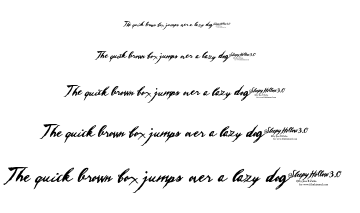 The quick brown box jumps over a lazy dog Sleepy Hollow 3.0
The quick brown box jumps over a lazy dog Sleepy Hollow 3.0
The quick brown box jumps over a lazy dog Sleepy Hollow 3.0
The quick brown box jumps over a lazy dog Sleepy Hollow 3.0
The quick brown box jumps over a lazy dog Sleepy Hollow 3.0